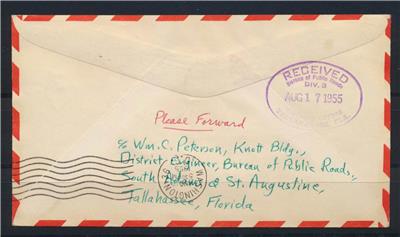 RECEIVED
Bureau of Public Roads
DIV. 3
AUG 17 1955
Please Forward
c/o Wm. C. Peterson, Knott Bldg.,
District Engineer, Bureau of Public Roads,
South Adams & St. Augustine,
Tallahassee, Florida
WASHINGTON